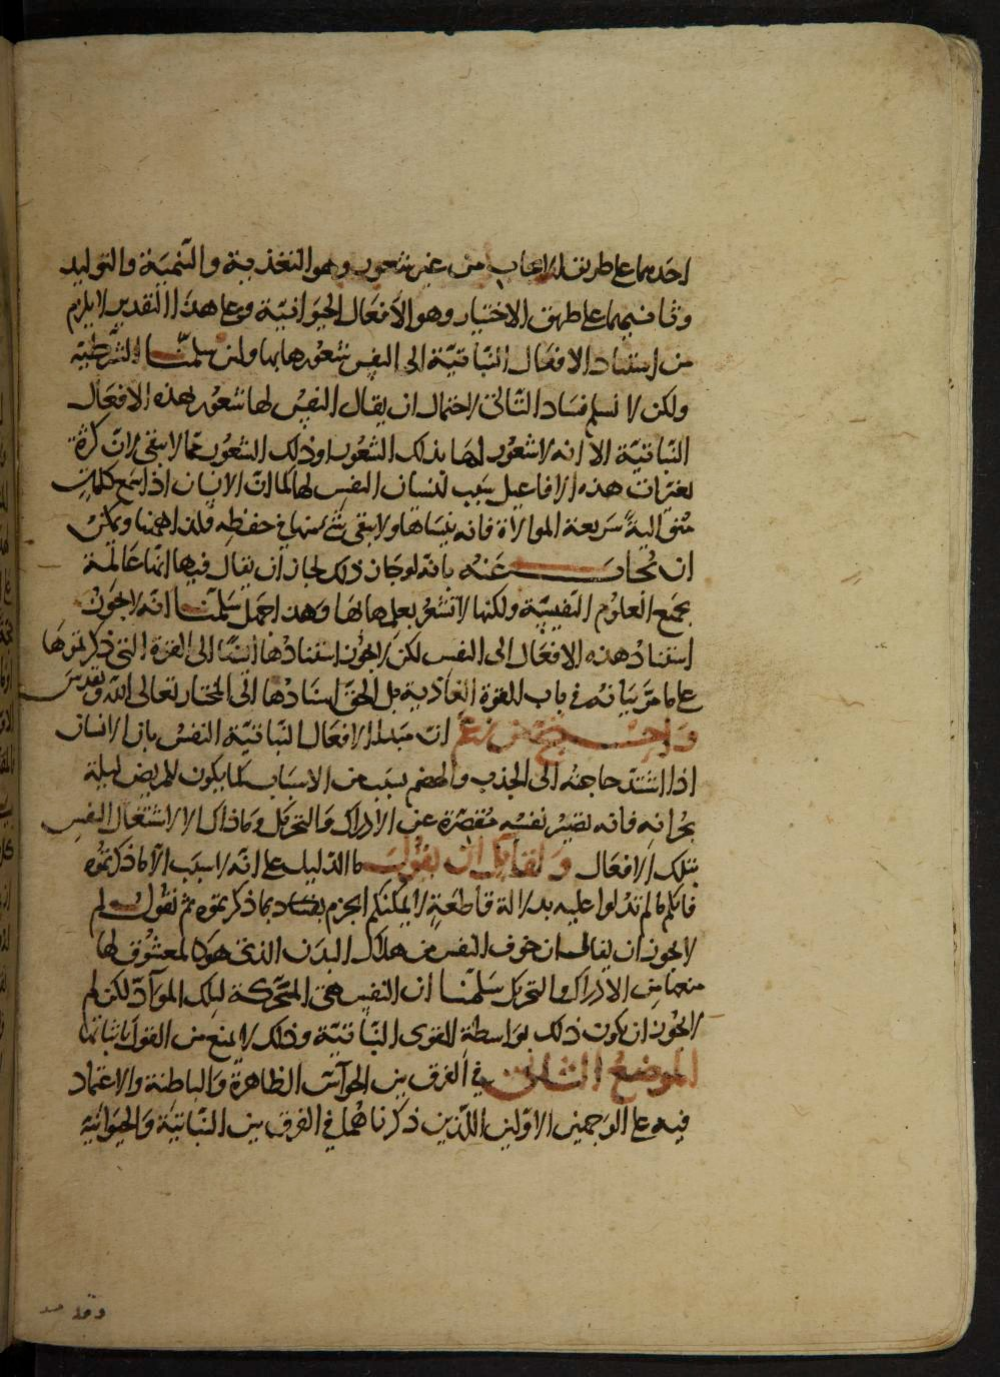 احدهما على طريق الايجاب من غير شعور وهو التغذية والتنمية والتوليد
وثانيهما على طريق الاختيار وهو الأفعال الحيوانية وعلى هذا التقدير لا يلزم
من استناد الافعال النباتية الى النفس شعورها بها ولئن سلمنا الشرطية
ولكن لا نسلم فساد التالي لاحتمال ان يقال النفس لها شعور بهذه الافعال
النباتية الا انه لا شعور لها بذلك الشعور او ذلك الشعور مما لا يبقى لان كثرة
تغيرات هذه الافاعيل سبب لنسيان النفس لها كما ان الانسان اذا سمع كلمات
متوالية سريعة الموالاة فانه ينساها ولا يبقى شئ منها في حفظه فكذا ههنا ويمكن
ان يجاب عنه بانه لو جاز ذلك لجاز ان يقال فيها انها عالمة
بجميع العلوم النفيسة ولكنها لا تشعر بعلمها بها وهذا جهل سلمنا انه لا يجوز
استناد هذه الافعال الى النفس لكن لا يجوز استنادها ايضا الى القوة التي ذكرتموها
على ما مر بيانه في باب القوة الغاذية بل الحق اسنادها الى المختار تعالى الله وتقدس
واحتج من زعم ان مبدا الافعال النباتية النفس بان الانسان
اذا اشتد حاجته الى الجذب والهضم بسبب من الاسباب كما يكون للمريض ليلة
بحرانه فانه تصير نفسه مقصرة عن الادراك والتحريك وما ذاك الا لاشتغال النفس
بتلك الافعال ولقائل ان يقول ما الدليل على انه لا سبب الا ما ذكرتموه
فانكم ما لم تدلوا عليه بدلالة قاطعة لا يمكنكم الجزم بفساد ما ذكرتموه ثم نقول لم
لا يجوز ان يقال ان خوف النفس من هلاك البدن الذي هو كالمعشوق لها
منعها من الادراك والتحريك سلمنا ان النفس هي المتحركة لتلك المواد لكن لم
لا يجوز ان يكون ذلك بواسطة القوى النباتية وذلك لا يمنع من القول باثباتها
الموضع الثاني في الفرق بين الحواس الظاهرة والباطنة والاعتماد
فيه على الوجهين الاولين اللذين ذكرناهما في الفرق بين النباتية والحيوانية
وقد